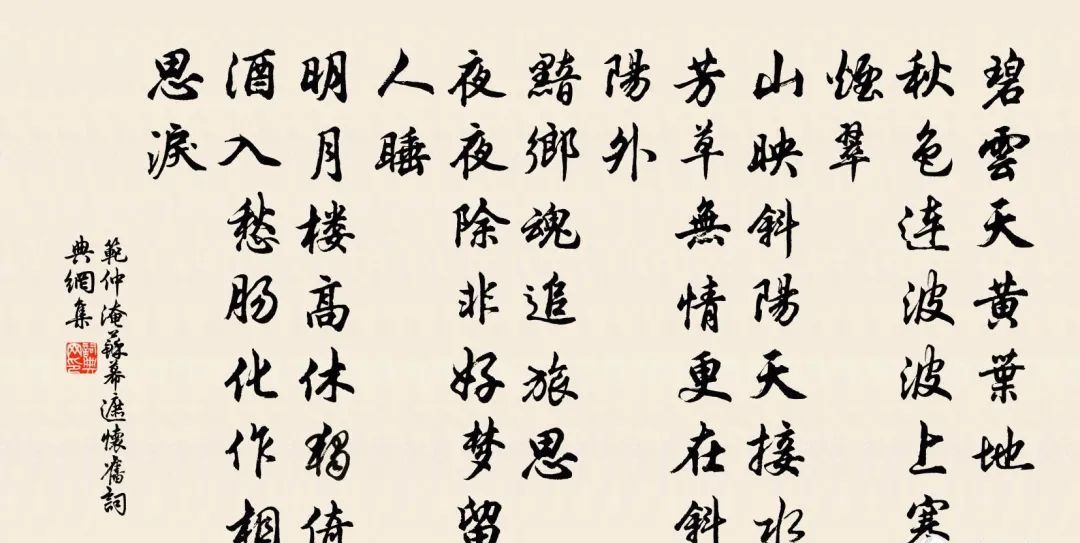 碧雲天黄葉地
秋色连波波上寒
煙翠
山映斜陽天接水
芳草無情更在斜
陽外
黯鄉魂追旅思
夜夜除非好梦留
人睡
明月楼高休獨倚
酒入愁肠化作相
思淚
範仲淹蘇幕遮懷舊詞
典網集